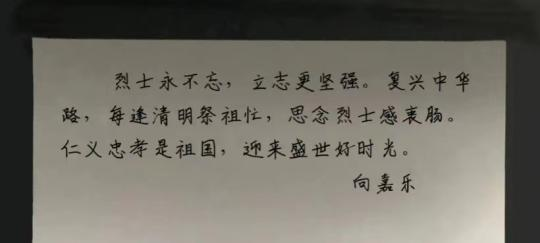 烈士永不忘，立志更坚强。复兴中华
路，每逢清明祭祖忙，思念烈士感衷肠。
仁义忠孝是祖国，迎来盛世好时光。
向嘉乐